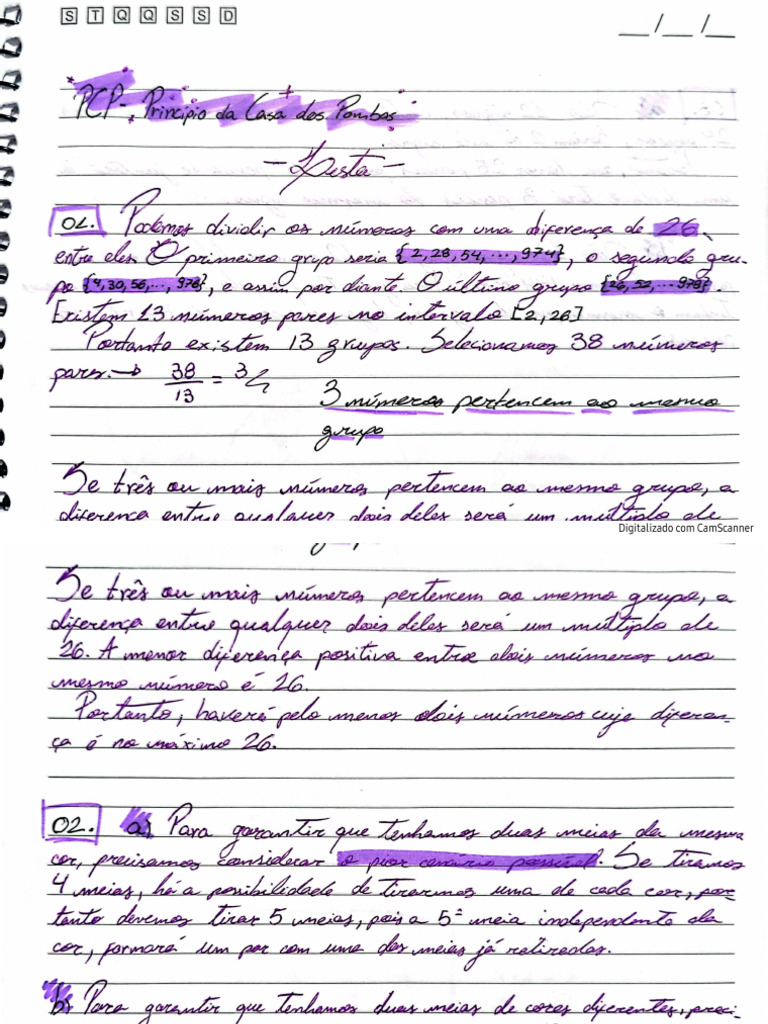 S T Q Q S S D
__/__/__
PCP - Princípio da Casa dos Pombos
- Lista -
01. Podemos dividir os números com uma diferença de 26
entre eles. O primeiro grupo seria {2, 28, 54, ..., 974}, o segundo gru-
po {4, 30, 56, ..., 976}, e assim por diante. O último grupo {26, 52, ... 978}.
Existem 13 números pares no intervalo [2, 26]
Portanto existem 13 grupos. Selecionamos 38 números
pares. → 38/13 = 3
3 números pertencem ao mesmo
grupo
Se três ou mais números pertencem ao mesmo grupo, a
diferença entre qualquer dois deles será um múltiplo de
Digitalizado com CamScanner
Se três ou mais números pertencem ao mesmo grupo, a
diferença entre qualquer dois deles será um múltiplo de
26. A menor diferença positiva entre dois números no
mesmo número é 26.
Portanto, haverá pelo menos dois números cuje diferen-
ça é no máximo 26.
02. a) Para garantir que tenhamos duas meias da mesma
cor, precisamos considerar o pior cenário possível. Se tiramos
4 meias, há a posibilidade de tirarmos uma de cada cor, por-
tanto devemos tirar 5 meias, pois a 5ª meia independente da
cor, formará um par com uma das meias já retiradas.
b) Para garantir que tenhamos duas meias de cores diferentes, preci-